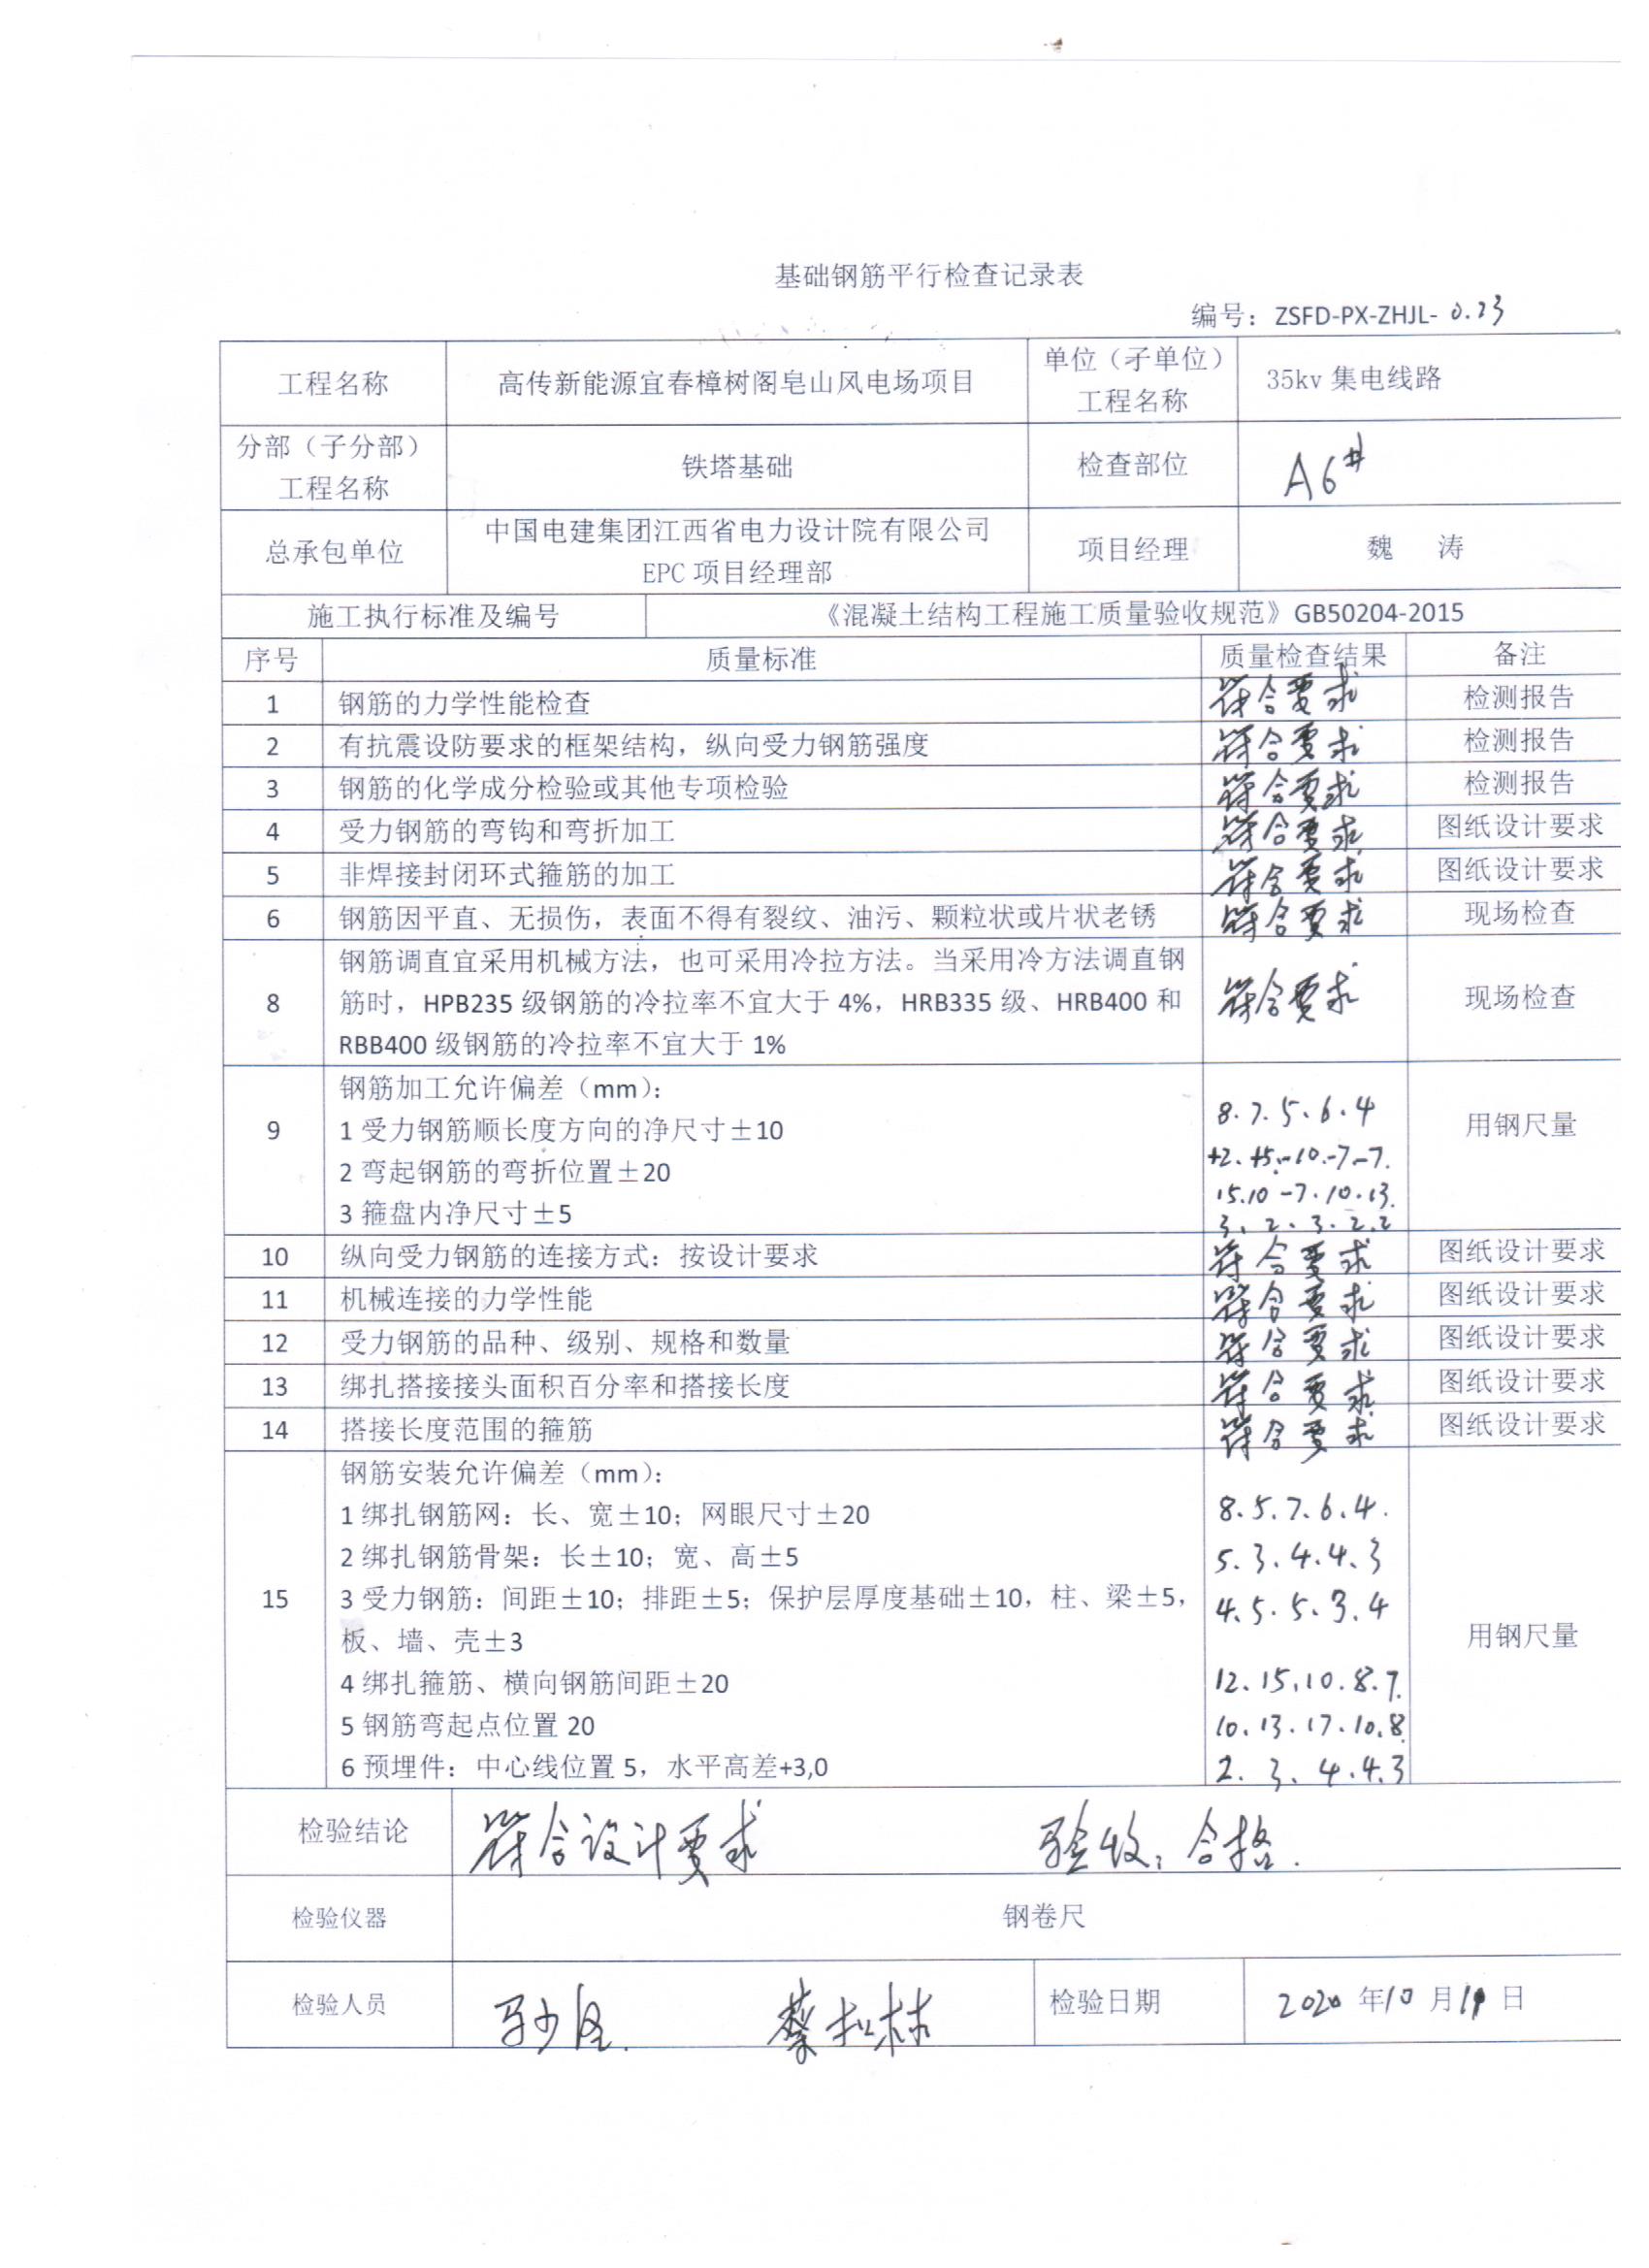 基础钢筋平行检查记录表
编号：ZSFD-PX-ZHJL- 0.23
工程名称 高传新能源宜春樟树阁皂山风电场项目 单位（子单位）工程名称 35kv 集电线路
分部（子分部）工程名称 铁塔基础 检查部位 A6#
总承包单位 中国电建集团江西省电力设计院有限公司 EPC 项目经理部 项目经理 魏 涛
施工执行标准及编号 《混凝土结构工程施工质量验收规范》GB50204-2015
序号 质量标准 质量检查结果 备注
1 钢筋的力学性能检查 符合要求 检测报告
2 有抗震设防要求的框架结构，纵向受力钢筋强度 符合要求 检测报告
3 钢筋的化学成分检验或其他专项检验 符合要求 检测报告
4 受力钢筋的弯钩和弯折加工 符合要求 图纸设计要求
5 非焊接封闭环式箍筋的加工 符合要求 图纸设计要求
6 钢筋因平直、无损伤，表面不得有裂纹、油污、颗粒状或片状老锈 符合要求 现场检查
钢筋调直宜采用机械方法，也可采用冷拉方法。当采用冷方法调直钢
8 筋时，HPB235 级钢筋的冷拉率不宜大于 4%，HRB335 级、HRB400 和 符合要求 现场检查
RBB400 级钢筋的冷拉率不宜大于 1%
钢筋加工允许偏差（mm）：
9 1 受力钢筋顺长度方向的净尺寸±10 8.7.5.6.4 用钢尺量
+2.+5.-10.-7-7.
2 弯起钢筋的弯折位置±20 15.10-7.10.13.
3 箍盘内净尺寸±5 3.2.3.2.2
10 纵向受力钢筋的连接方式：按设计要求 符合要求 图纸设计要求
11 机械连接的力学性能 符合要求 图纸设计要求
12 受力钢筋的品种、级别、规格和数量 符合要求 图纸设计要求
13 绑扎搭接接头面积百分率和搭接长度 符合要求 图纸设计要求
14 搭接长度范围的箍筋 符合要求 图纸设计要求
钢筋安装允许偏差（mm）：
1 绑扎钢筋网：长、宽±10；网眼尺寸±20 8.5.7.6.4.
2 绑扎钢筋骨架：长±10；宽、高±5 5.3.4.4.3
15 3 受力钢筋：间距±10；排距±5；保护层厚度基础±10，柱、梁±5， 4.5.5.3.4
板、墙、壳±3 用钢尺量
4 绑扎箍筋、横向钢筋间距±20 12.15.10.8.7.
5 钢筋弯起点位置 20 10.13.17.10.8
6 预埋件：中心线位置 5，水平高差+3,0 2.3.4.4.3
检验结论 符合设计要求 验收：合格.
检验仪器 钢卷尺
检验人员 检验日期 2020 年10 月 日